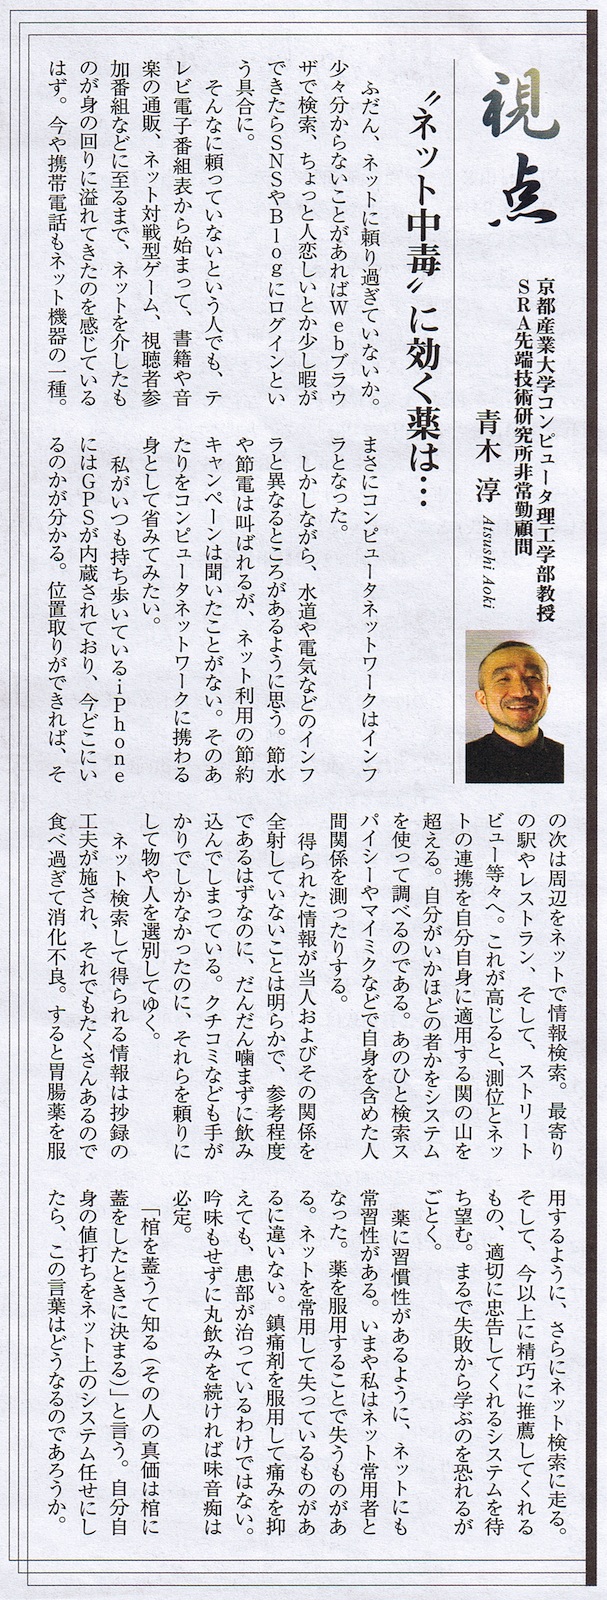 視点
京都産業大学コンピュータ理工学部教授
SRA先端技術研究所非常勤顧問
青木 淳 Atsushi Aoki
〝ネット中毒〟に効く薬は…
ふだん、ネットに頼り過ぎていないか。
少々分からないことがあればWebブラウ
ザで検索、ちょっと人恋しいとか少し暇が
できたらSNSやBlogにログインとい
う具合に。
そんなに頼っていないという人でも、テ
レビ電子番組表から始まって、書籍や音
楽の通販、ネット対戦型ゲーム、視聴者参
加番組などに至るまで、ネットを介したも
のが身の回りに溢れてきたのを感じている
はず。今や携帯電話もネット機器の一種。
まさにコンピュータネットワークはインフ
ラとなった。
しかしながら、水道や電気などのインフ
ラと異なるところがあるように思う。節水
や節電は叫ばれるが、ネット利用の節約
キャンペーンは聞いたことがない。そのあ
たりをコンピュータネットワークに携わる
身として省みてみたい。
私がいつも持ち歩いているiPhone
にはGPSが内蔵されており、今どこにい
るのかが分かる。位置取りができれば、そ
の次は周辺をネットで情報検索。最寄り
の駅やレストラン、そして、ストリート
ビュー等々へ。これが高じると、測位とネッ
トの連携を自分自身に適用する関の山を
超える。自分がいかほどの者かをシステム
を使って調べるのである。あのひと検索ス
パイシーやマイミクなどで自身を含めた人
間関係を測ったりする。
得られた情報が当人およびその関係を
全射していないことは明らかで、参考程度
であるはずなのに、だんだん噛まずに飲み
込んでしまっている。クチコミなども手が
かりでしかなかったのに、それらを頼りに
して物や人を選別してゆく。
ネット検索して得られる情報は抄録の
工夫が施され、それでもたくさんあるので
食べ過ぎて消化不良。すると胃腸薬を服
用するように、さらにネット検索に走る。
そして、今以上に精巧に推薦してくれる
もの、適切に忠告してくれるシステムを待
ち望む。まるで失敗から学ぶのを恐れるが
ごとく。
薬に習慣性があるように、ネットにも
常習性がある。いまや私はネット常用者と
なった。薬を服用することで失うものがあ
る。ネットを常用して失っているものがあ
るに違いない。鎮痛剤を服用して痛みを抑
えても、患部が治っているわけではない。
吟味もせずに丸飲みを続ければ味音痴は
必定。
「棺を蓋うて知る(その人の真価は棺に
蓋をしたときに決まる)」と言う。自分自
身の値打ちをネット上のシステム任せにし
たら、この言葉はどうなるのであろうか。